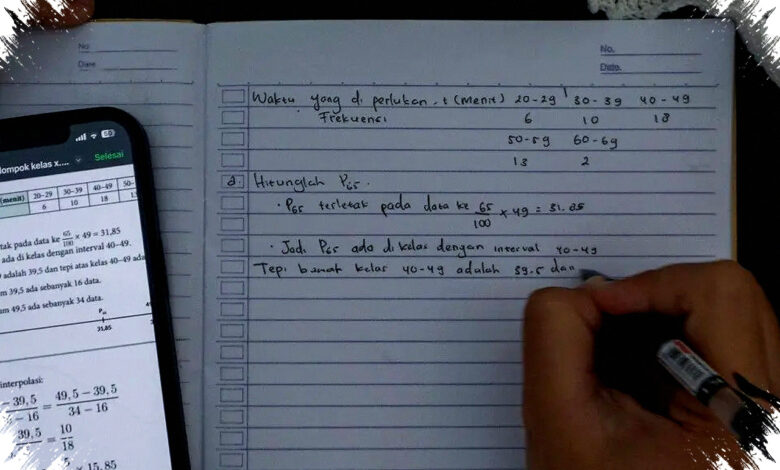 No
Date
No.
Date.
Waktu yang di perlukan, t (menit) 20-29 30-39 40-49
Frekuensi 6 10 18
50-59 60-69
13 2
a. Hitunglah P65.
• P65 terletak pada data ke 65/100 x 49 = 31.85
• Jadi P65 ada di kelas dengan interval 40-49
Tepi bawat kelas 40-49 adalah 39.5 dan
50
ompok kelas x.... Selesai
(menit) 20-29 30-39 40-49 50-
6 10 18
tak pada data ke 65/100 × 49 = 31,85
ada di kelas dengan interval 40–49.
adalah 39,5 dan tepi atas kelas 40–49 ada
m 39,5 ada sebanyak 16 data.
am 49,5 ada sebanyak 34 data.
P65
31,85
interpolasi:
– 39,5 / – 16 = 49,5 – 39,5 / 34 – 16
39,5 = 10/18
× 15,85